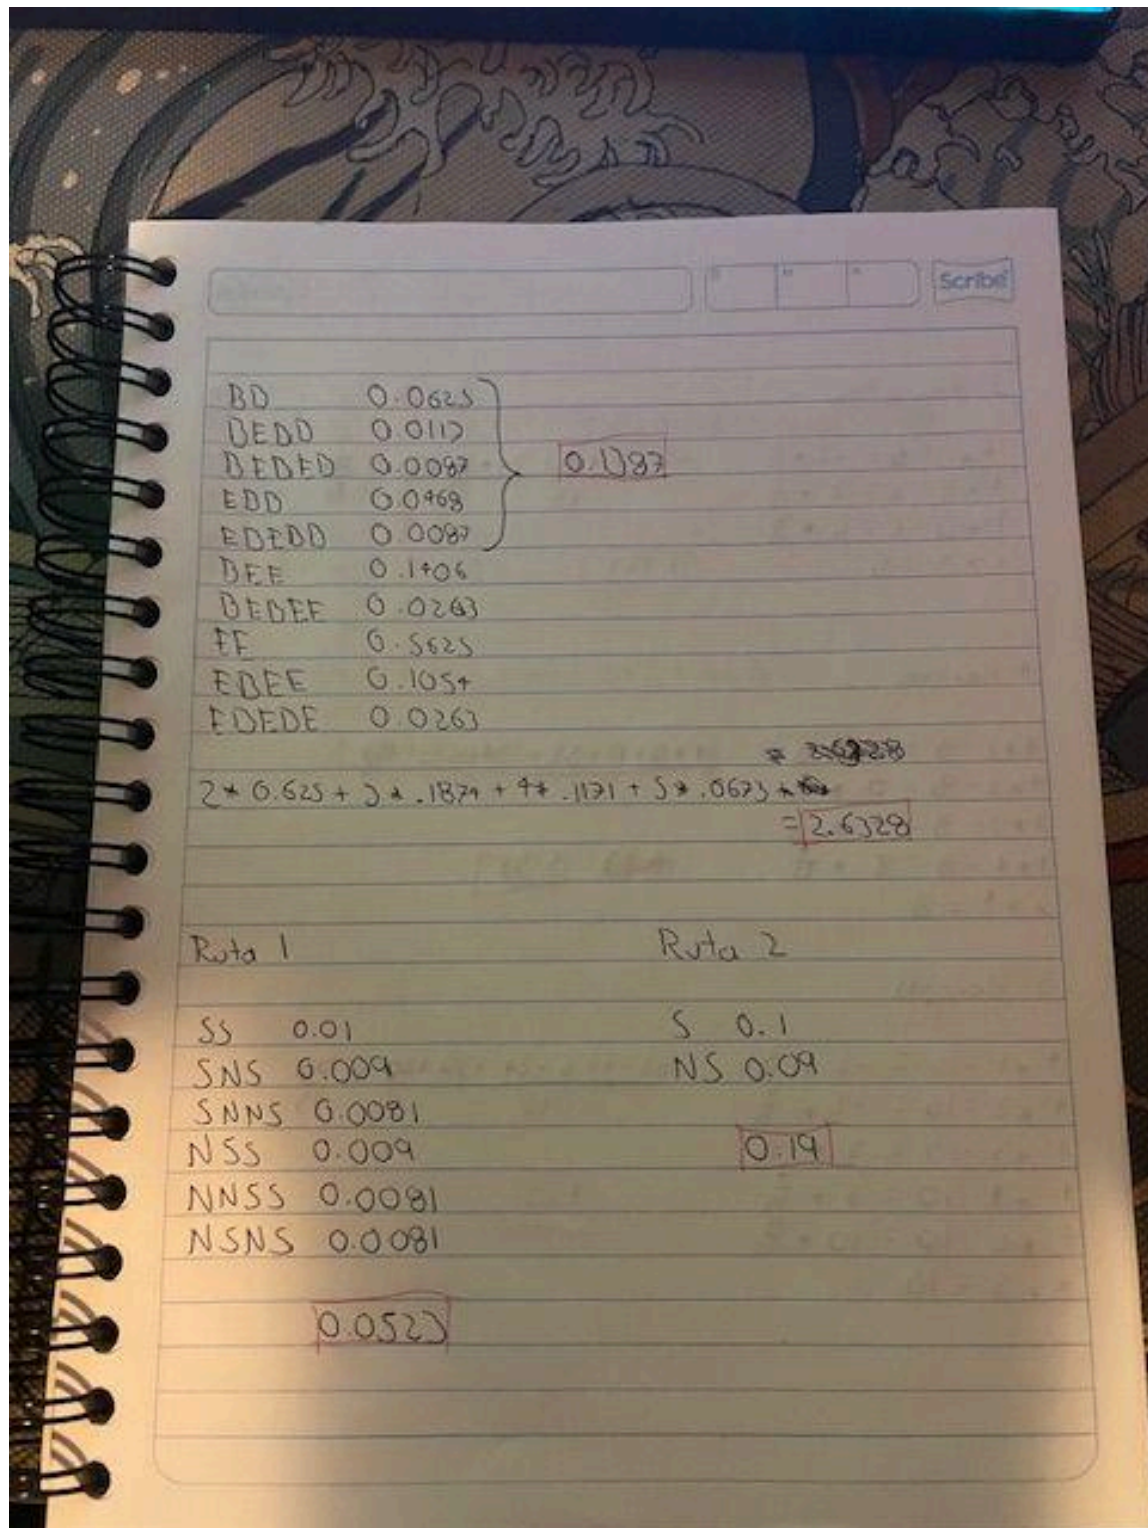 Scribe
BD 0.0625
BEDD 0.0117
BEDED 0.0087
EDD 0.0468
EDEDD 0.0087
0.1387
BEE 0.1406
BEDEE 0.0263
EE 0.5625
EBEE 0.1054
EDEDE 0.0263
2* 0.625 + 3* .1874 + 4* .1171 + 5* .0673
= 2.6328
Ruta 1 Ruta 2
SS 0.01 S 0.1
SNS 0.009 NS 0.09
SNNS 0.0081
NSS 0.009 0.19
NNSS 0.0081
NSNS 0.0081
0.0523